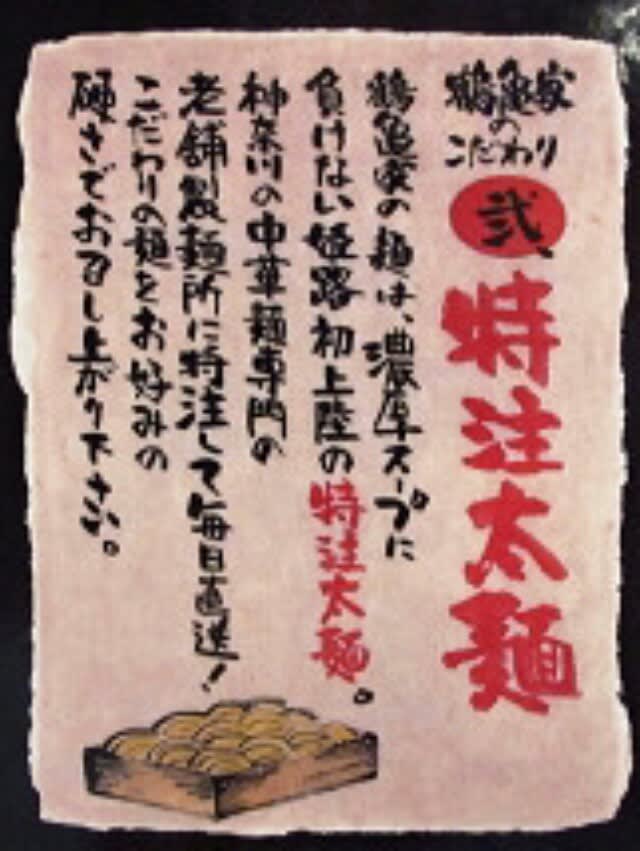 鶴亀家
の
こだわり
弐、
特注太麺
鶴亀家の麺は、濃厚スープに
負けない姫路初上陸の特注太麺。
神奈川の中華麺専門の
老舗製麺所に特注して毎日直送!
こだわりの麺をお好みの
硬さでお召し上がり下さい。